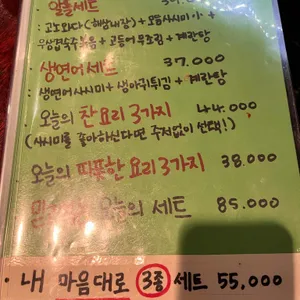 일품세트
: 고노와다 (해삼내장) + 모듬사시미 小 +
우삼겹숙주볶음 + 고등어무조림 + 계란탕
· 생연어세트 37.000
생연어사시미 + 생아귀튀김 + 계란탕
· 오늘의 찬요리 3가지 44.000
(사시미를 좋아하신다면 주저없이 선택!)
오늘의 따뜻한 요리 3가지 38.000
오늘의 세트 85.000
· 내 마음대로 3종 세트 55,000